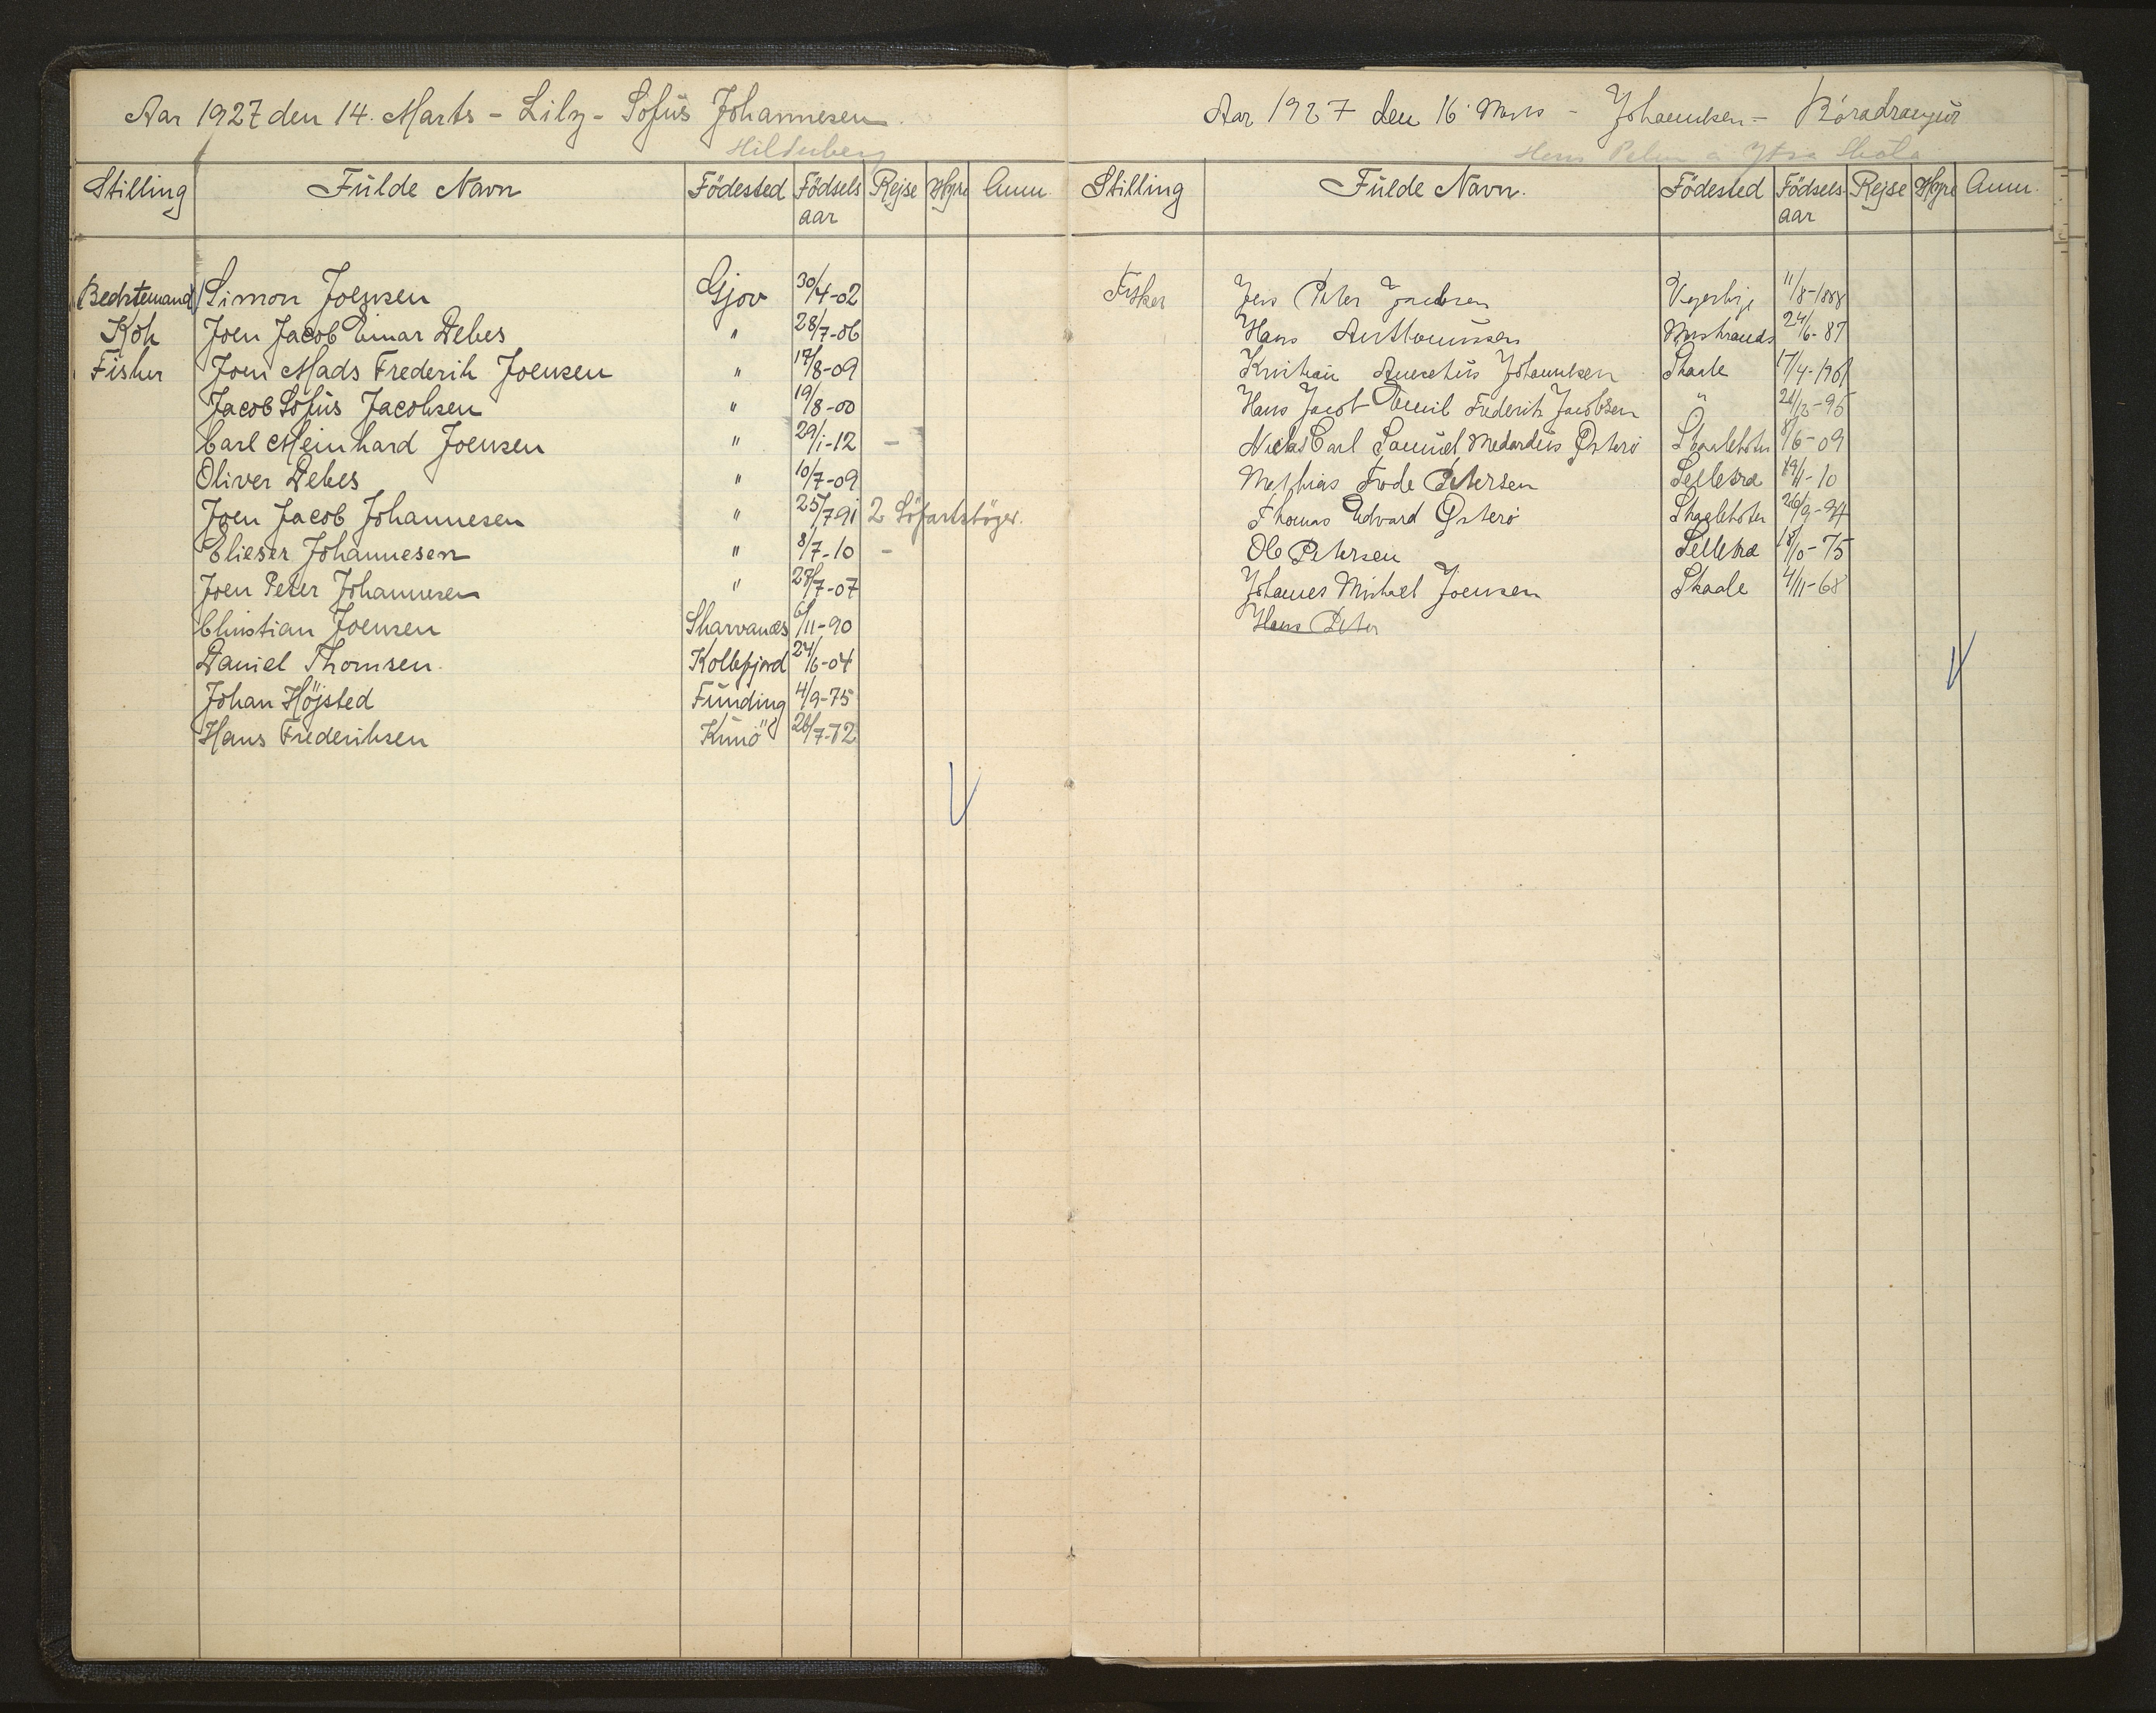 Aar 1927 den 14. Marts - Lily - Sofus Johannesen.
Stilling Fulde Navn Födested Födsels aar Rejse Hyre Anm.
Bedstemand Simon Joensen Gjov 30/4-02
Kok Joen Jacob Einar Debes " 28/7-06
Fisker Joen Mads Frederik Joensen " 17/8-09
Jacob Sofus Jacobsen " 19/8-00
Carl Meinhard Joensen " 29/1-12 -
Oliver Debes " 10/7-09
Joen Jacob Johannesen " 25/7 91 2 Söfartsböger.
Elieser Johannesen " 8/7-10 -
Joen Peter Johannesen " 28/7-07
Christian Joensen Skarvanes 6/11-90
Daniel Thomsen. Kollefjord 24/6-04
Johan Höjsted Funding 4/9-75
Hans Frederiksen Kunö 26/7-72
Aar 1927 den 16 Marts - Johannesen -
Hans Peter a Ytra Skála
Stilling Fulde Navn. Födested Födsels aar Rejse Hyre Anm.
Fisker Jens Peter Jacobsen 11/8-1888
Hans Anthoniussen 24/6-87
Kristian Johannesen Skaale 17/4-1901
Hans Jacob Emil Frederik Jacobsen " 24/12-95
Niclas Carl Samuel Medardus Østerø Skaalebotn 8/6-09
Mathias Frode Petersen Selletræ 19/1-10
Thomas Edvard Østerø Skaalebotn 26/9-94
Ole Petersen Selletræ 18/10-75
Johannes Michael Joensen Skaale 4/11-68
Hans Peter